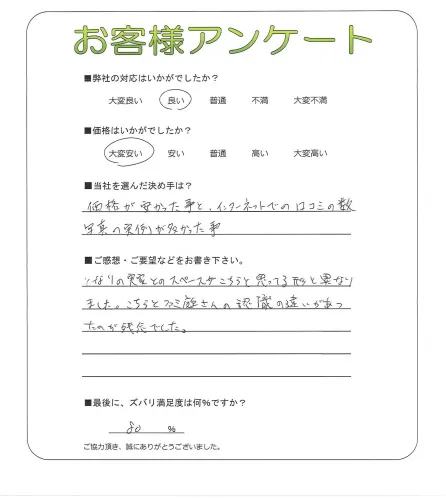 お客様アンケート
■弊社の対応はいかがでしたか?
大変良い 良い 普通 不満 大変不満
■価格はいかがでしたか?
大変安い 安い 普通 高い 大変高い
■当社を選んだ決め手は?
価格が安かった事と、インターネットでの口コミの数
写真の実例が多かった事
■ご感想・ご要望などをお書き下さい。
となりの とのスペースがこちらと思ってる形と異なり
ました。こちらと さんの認識の違いがあっ
たのが残念でした。
■最後に、ズバリ満足度は何%ですか?
80 %
ご協力頂き、誠にありがとうございました。